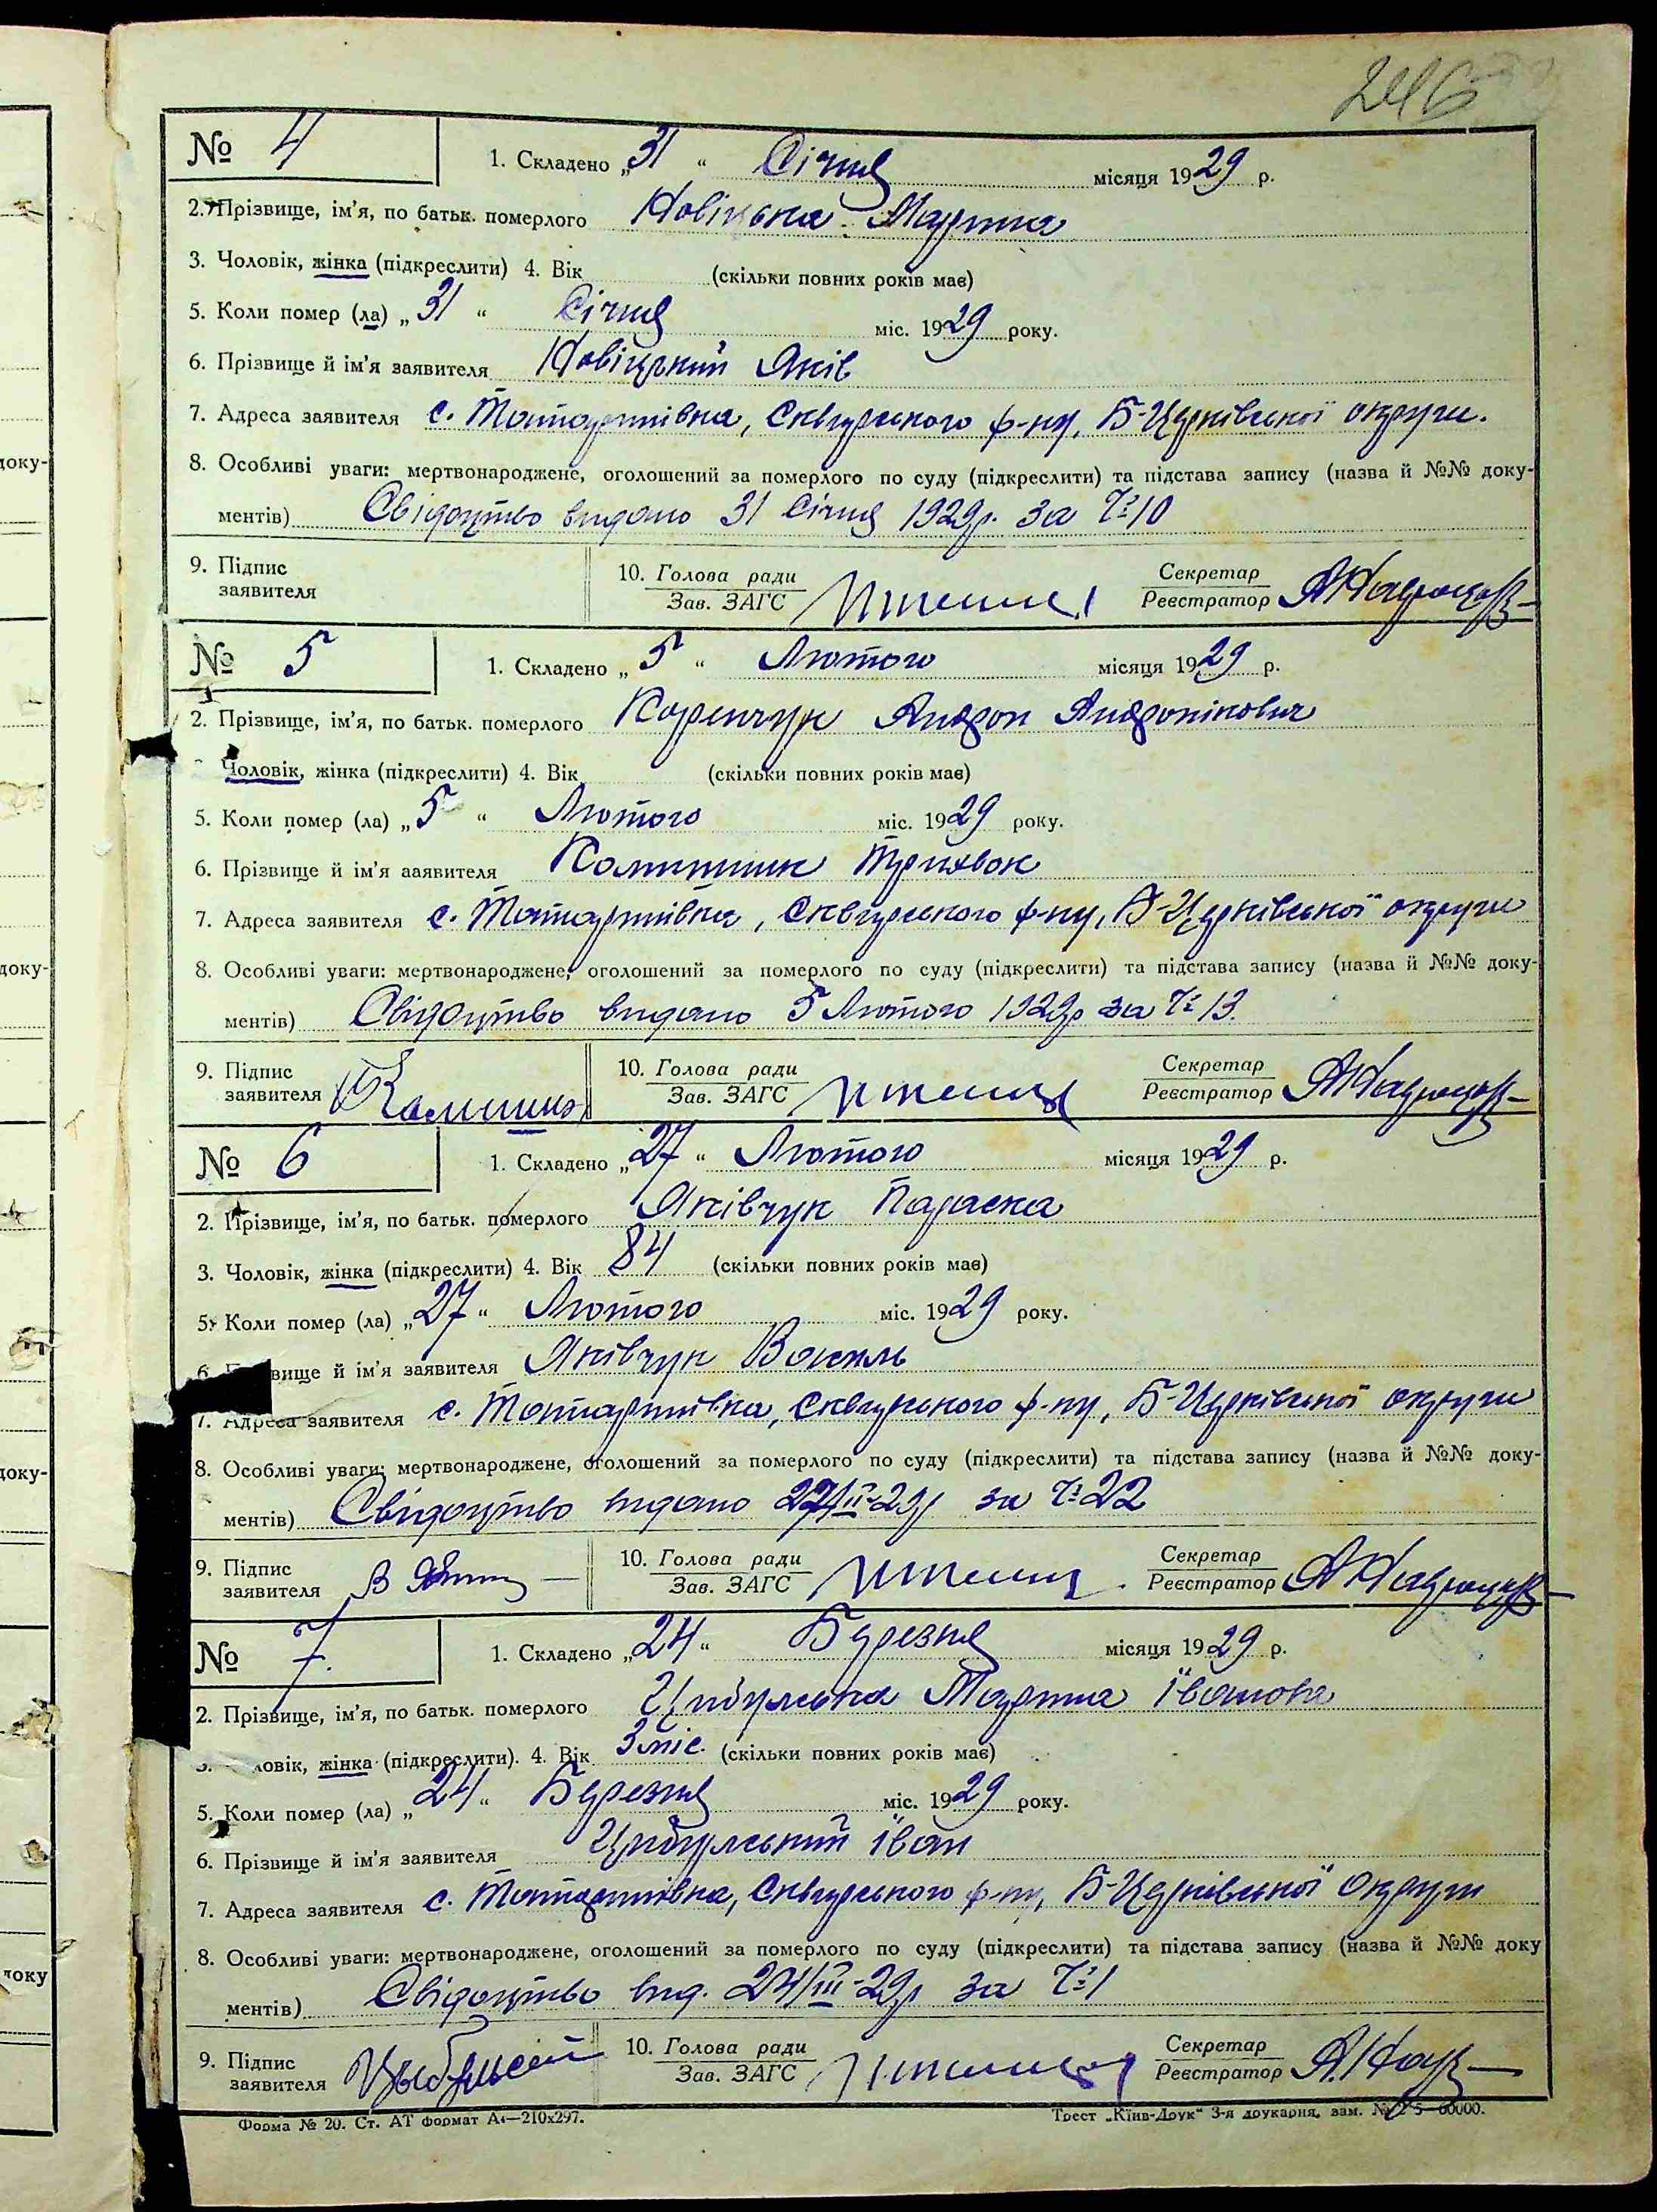 246
№ 4
1. Складено „31“ Січня місяця 1929 р.
2. Прізвище, ім'я, по батьк. померлого Новіцька Марина
3. Чоловік, жінка (підкреслити) 4. Вік (скільки повних років має)
5. Коли помер (ла) „31“ Січня міс. 1929 року.
6. Прізвище й ім'я заявителя Новіцький Яків
7. Адреса заявителя с. Татаринівка, Сквирського р-ну, Б-Церківської округи.
8. Особливі уваги: мертвонароджене, оголошений за померлого по суду (підкреслити) та підстава запису (назва й №№ доку-
ментів) Свідоцтво видано 31 Січня 1929р. за Ч: 10
9. Підпис
заявителя
10. Голова ради
Зав. ЗАГС
Секретар
Реєстратор
№ 5
1. Складено „5“ Лютого місяця 1929 р.
2. Прізвище, ім'я, по батьк. померлого Коренчук Андрон Андронікович
Чоловік, жінка (підкреслити) 4. Вік (скільки повних років має)
5. Коли помер (ла) „5“ Лютого міс. 1929 року.
6. Прізвище й ім'я заявителя Калишник
7. Адреса заявителя с. Татаринівка, Сквирського р-ну, Б-Церківської округи
8. Особливі уваги: мертвонароджене, оголошений за померлого по суду (підкреслити) та підстава запису (назва й №№ доку-
ментів) Свідоцтво видано 5 Лютого 1929р за Ч: 13.
9. Підпис
заявителя
10. Голова ради
Зав. ЗАГС
Секретар
Реєстратор
№ 6
1. Складено „27“ Лютого місяця 1929 р.
2. Прізвище, ім'я, по батьк. померлого Яківчук Параска
3. Чоловік, жінка (підкреслити) 4. Вік 84 (скільки повних років має)
5. Коли помер (ла) „27“ Лютого міс. 1929 року.
6. вище й ім'я заявителя Яківчук Василь
7. Адреса заявителя с. Татаринівка, Сквирського р-ну, Б-Церківської округи
8. Особливі уваги: мертвонароджене, оголошений за померлого по суду (підкреслити) та підстава запису (назва й №№ доку-
ментів) Свідоцтво видано 27/II-29р за Ч: 22
9. Підпис
заявителя
10. Голова ради
Зав. ЗАГС
Секретар
Реєстратор
№ 7.
1. Складено „24“ Березня місяця 1929 р.
2. Прізвище, ім'я, по батьк. померлого Цибульська Марина Іванова
ловік, жінка (підкреслити). 4. Вік 3 міс. (скільки повних років має)
5. Коли помер (ла) „24“ Березня міс. 1929 року.
6. Прізвище й ім'я заявителя Цибульський Іван
7. Адреса заявителя с. Татаринівка, Сквирського р-ну, Б-Церківської Округи
8. Особливі уваги: мертвонароджене, оголошений за померлого по суду (підкреслити) та підстава запису (назва й №№ доку
ментів) Свідоцтво вид. 24/III-29р за Ч: 1
9. Підпис
заявителя
10. Голова ради
Зав. ЗАГС
Секретар
Реєстратор
Форма № 20. Ст. АТ формат А4—210х297.
Трест „Київ-Друк“ 3-я друкарня, зам.